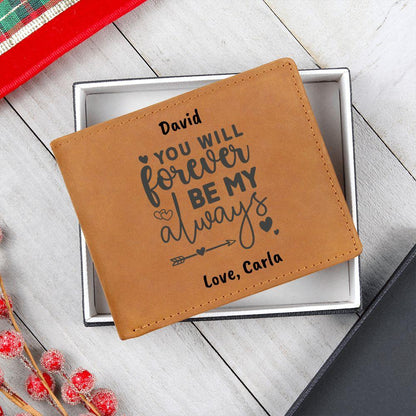 David
YOU WILL
forever
BE MY
always
Love, Carla